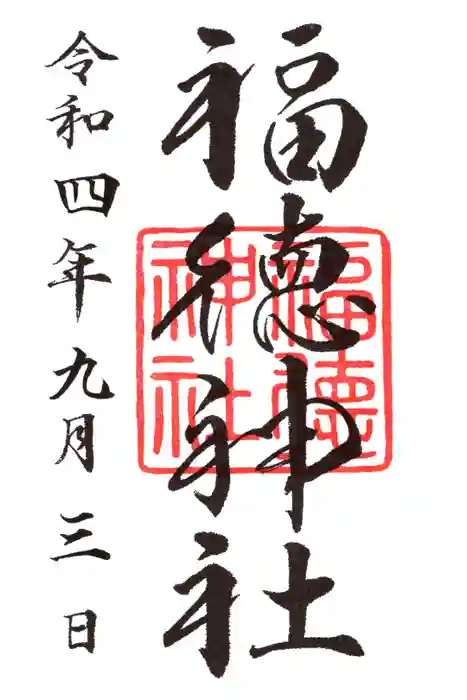 福德神社
福德神社
令和四年九月三日